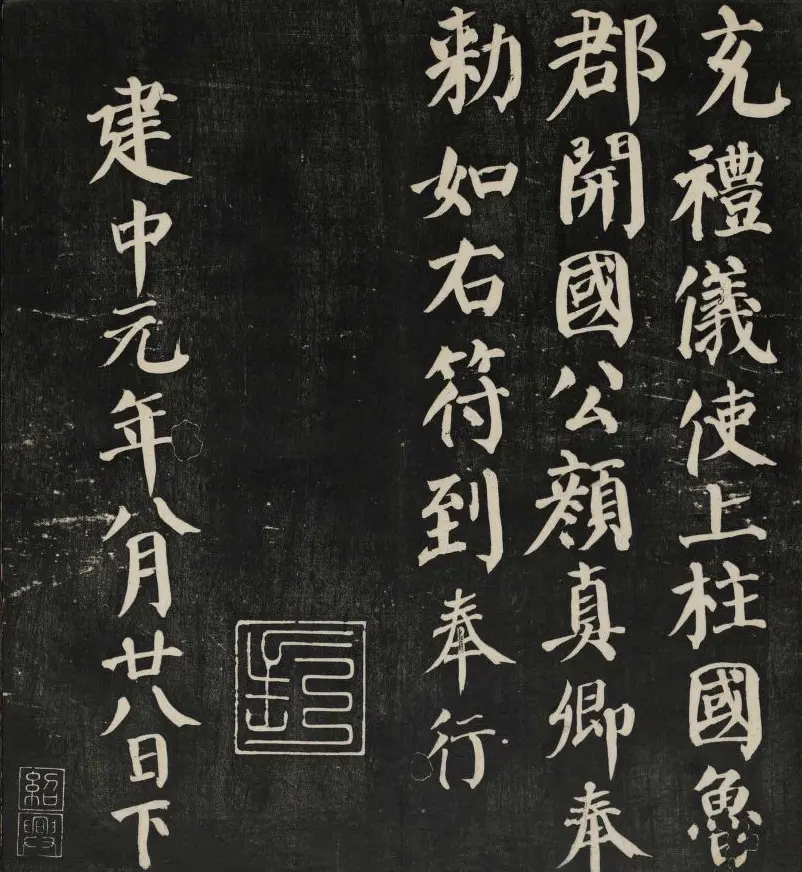 充禮儀使上柱國魯
郡開國公顏真卿奉
勑如右符到奉行
建中元年八月廿八日下
印
紹興